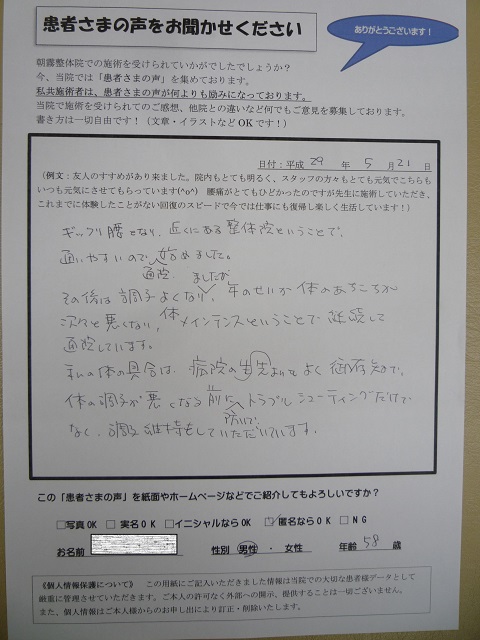 患者さまの声をお聞かせください
ありがとうございます!
朝霧整体院での施術を受けられていかがでしたでしょうか?
今、当院では「患者さまの声」を集めております。
私共施術者は、患者さまの声が何よりも励みになっております。
当院で施術を受けられてのご感想、他院との違いなど何でもご意見を募集しております。
書き方は一切自由です!(文章・イラストなどOKです!)
日付:平成 29 年 5 月 21 日
(例文:友人のすすめがあり来ました。院内もとても明るく、スタッフの方々もとても元気でこちらも
いつも元気にさせてもらっています(^o^) 腰痛がとてもひどかったのですが先生に施術していただき、
これまでに体験したことがない回復のスピードで今では仕事にも復帰し楽しく生活しています!)
ギックリ腰となり、近くにある整体院ということで、
通いやすいので通院始めました。
その後は調子よくなりましたが、年のせいか体のあちこちが
次々と悪くなり、体メインテンスということで継続して
通院しています。
私の体の具合は、病院の先生よりもよく御存知で、
体の調子が悪くなる前に防いで、トラブルシューティングだけで
なく、調子維持をしていただいています。
この「患者さまの声」を紙面やホームページなどでご紹介してもよろしいですか?
□写真OK □ 実名OK □イニシャルならOK ☑匿名ならOK □ NG
お名前 性別 男性 ・ 女性 年齢 58 歳
≪個人情報保護について≫ この用紙にご記入いただきました情報は当院での大切な患者様データとして
厳重に管理させていただきます。ご本人の許可なく外部への開示、提供することは一切ございません。
また、個人情報はご本人様からのお申し出により訂正・削除いたします。